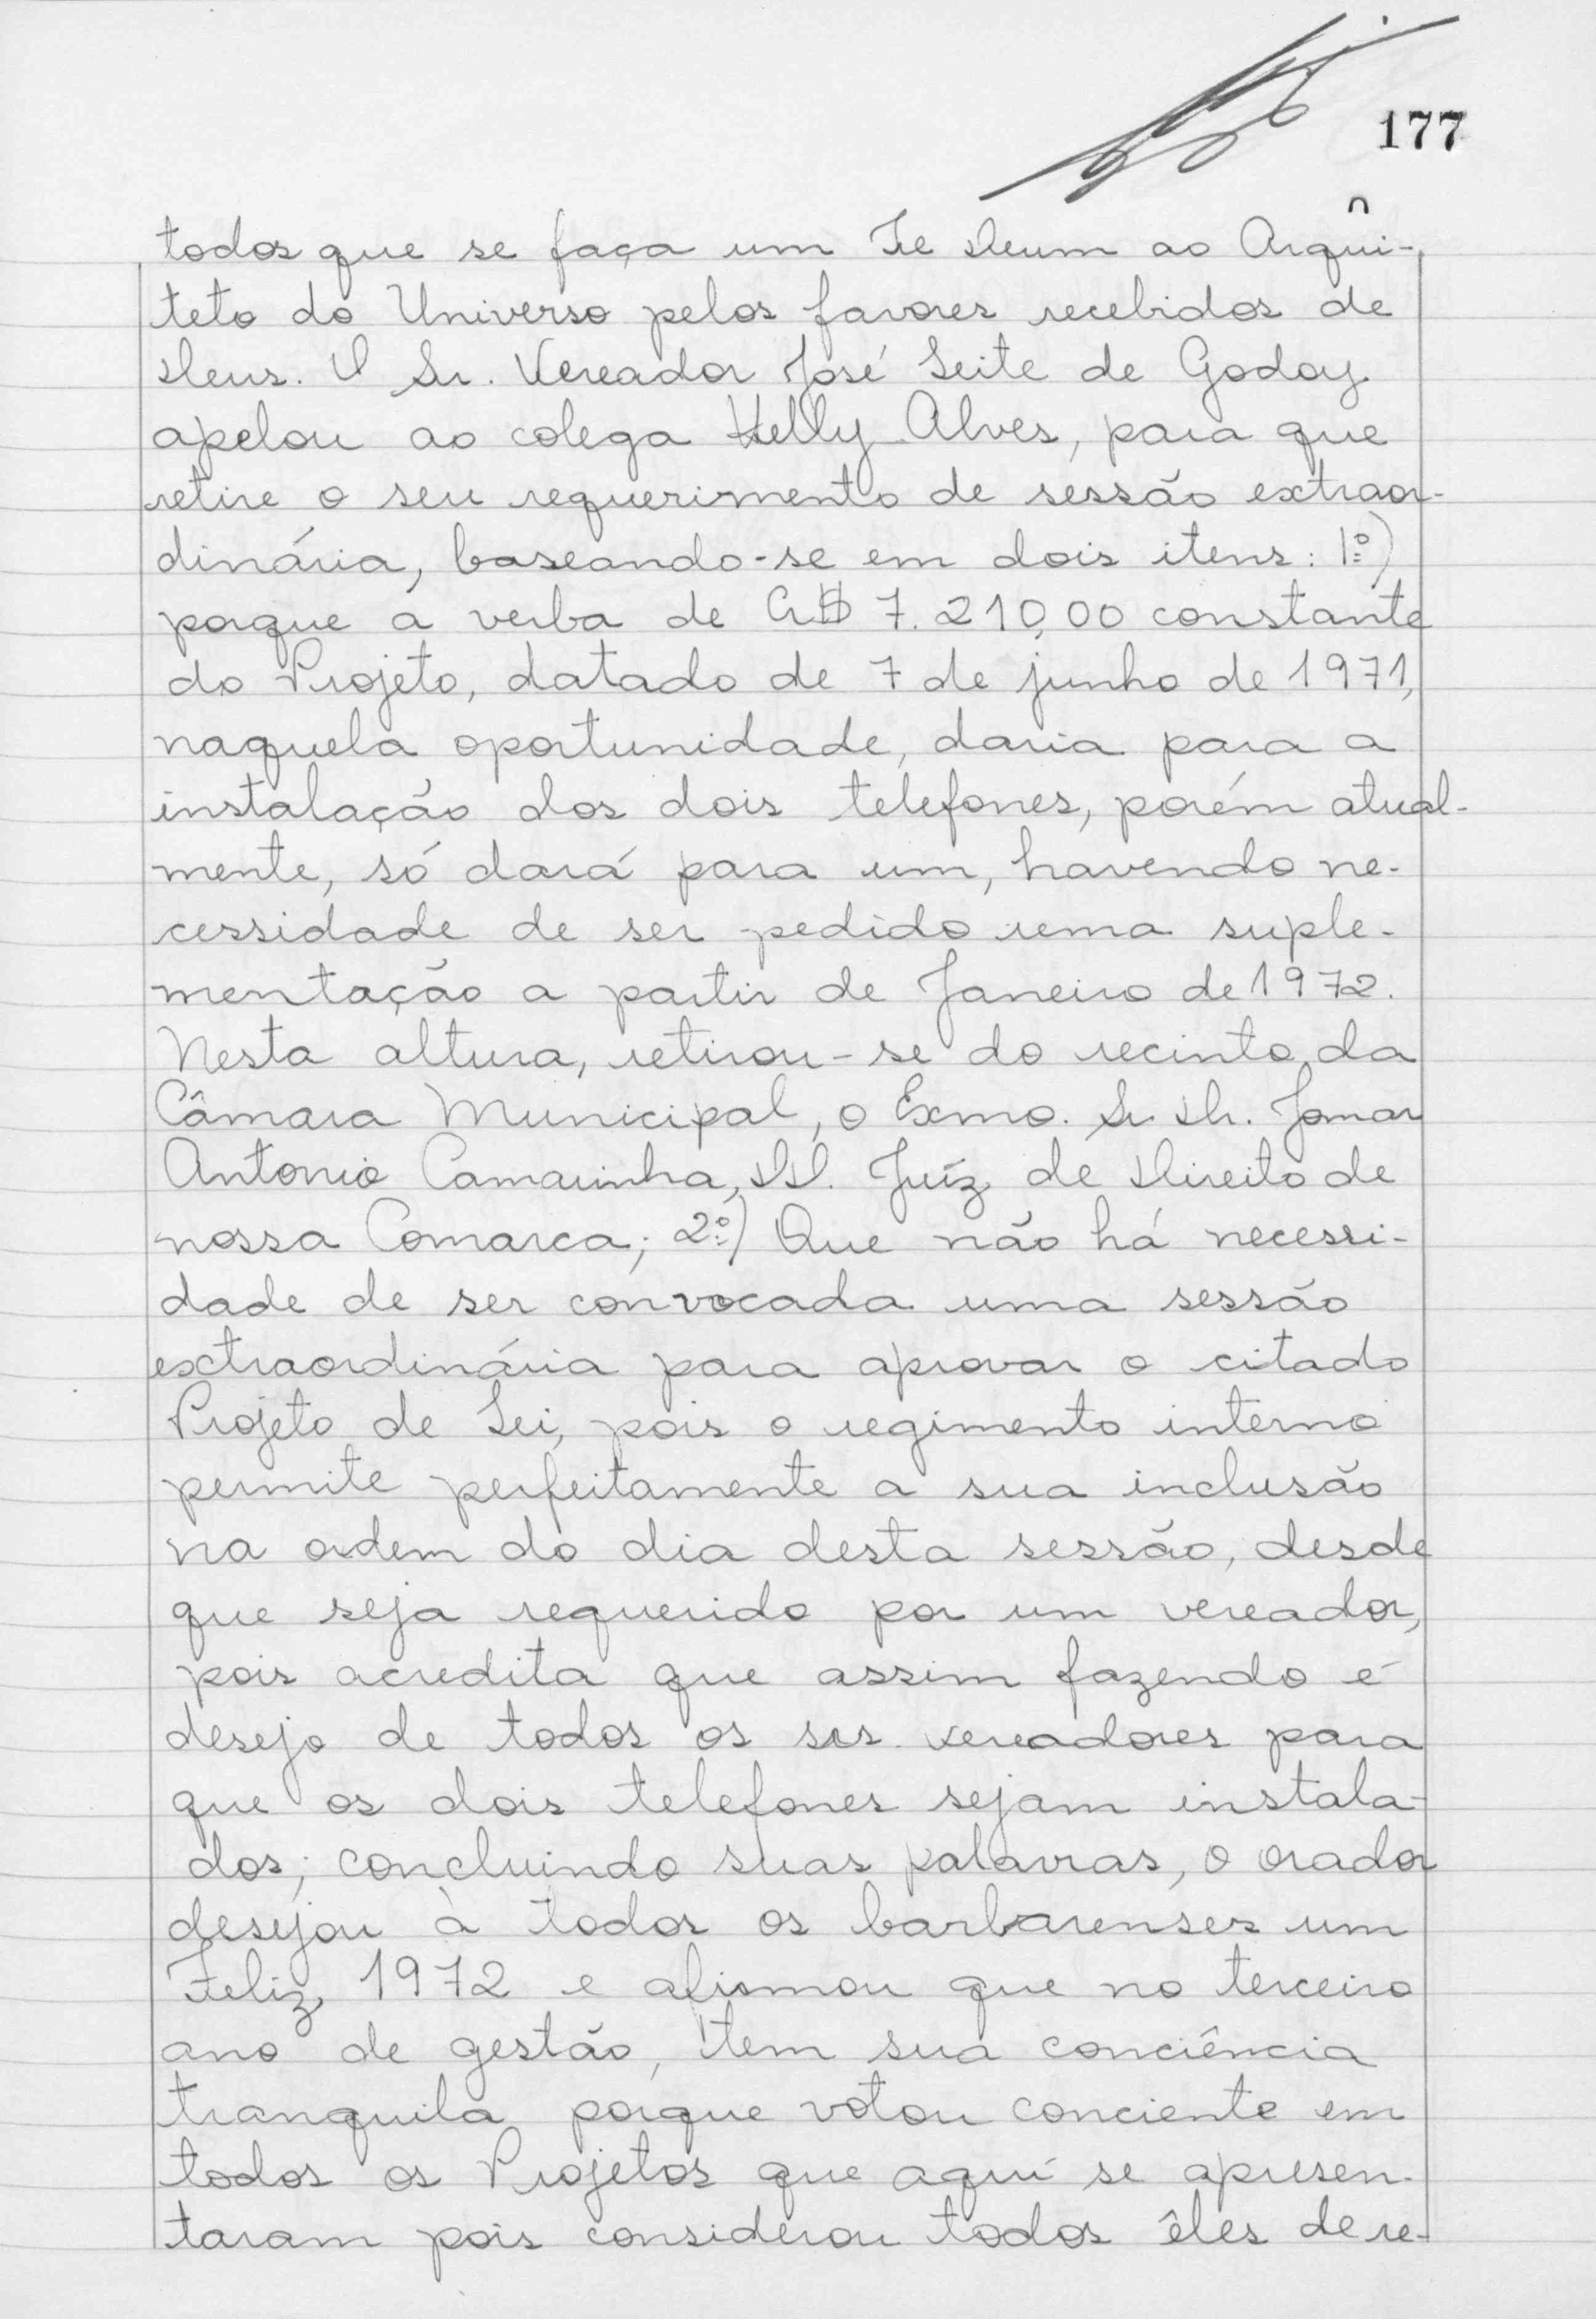 177
todos que se faça um Te Deum ao Arqui-
teto do Universo pelos favores recebidos de
Deus. O Sr. Vereador José Leite de Godoy
apelou ao colega Kelly Alves, para que
retire o seu requerimento de sessão extraor-
dinária, baseando-se em dois itens: 1º)
porque a verba de Cr$ 7.210,00 constante
do Projeto, datado de 7 de junho de 1971,
naquela oportunidade, daria para a
instalação dos dois telefones, porém atual-
mente, só dará para um, havendo ne-
cessidade de ser pedido uma suple-
mentação a partir de Janeiro de 1972.
Nesta altura, retirou-se do recinto da
Câmara Municipal, o Exmo. Sr Dr. Jomar
Antonio Camarinha, DD. Juíz de Direito de
nossa Comarca; 2º) Que não há necessi-
dade de ser convocada uma sessão
extraordinária para aprovar o citado
Projeto de Lei, pois o regimento interno
permite perfeitamente a sua inclusão
na ordem do dia desta sessão, desde
que seja requerido por um vereador,
pois acredita que assim fazendo é
desejo de todos os srs. vereadores para
que os dois telefones sejam instala-
dos; concluindo suas palavras, o orador
desejou à todos os barbarenses um
Feliz 1972 e afirmou que no terceiro
ano de gestão, tem sua conciência
tranquila porque votou conciente em
todos os Projetos que aquí se apresen-
taram pois considerou todos êles de re-